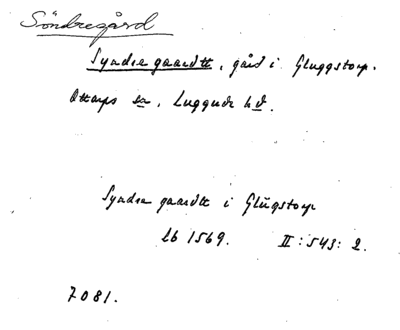 Söndregård
Syndre gaardtt, gård i Gluggstorp.
Ottarps sn, Luggude hd.
Syndre gaardtt i Glŭgstorp
lb 1569. II:543:2.
7081.